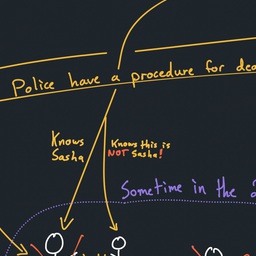 Police have a procedure for
Knows
Sasha
Knows this is
NOT Sasha!
Sometime in the